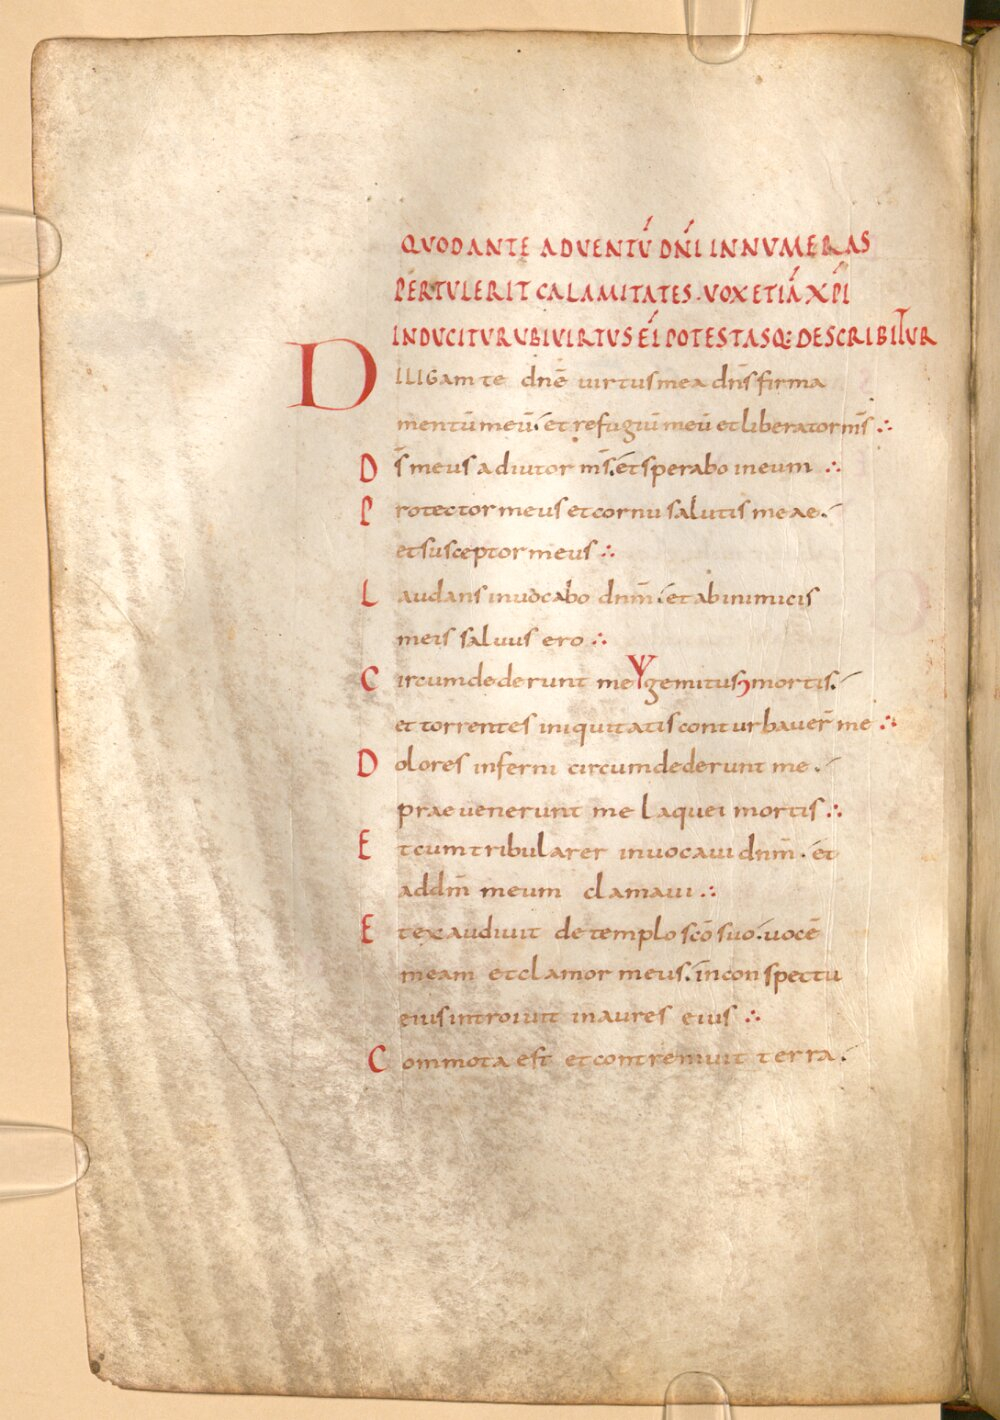 QUOD ANTE ADVENTŪ DN̄I INNUMERAS
PERTULERIT CALAMITATES · VOX ETIĀ XP̄I
INDUCITUR UBI VIRTUS EI POTESTASQ: DESCRIBITUR
DILIGam te dnē uirtus mea dn̄s firma
mentū meū. et refugiū meū et liberator m̄s ∴
Ds̄ meus adiutor m̄s. et sperabo in eum ∴
Protector meus et cornu salutis meae.
et susceptor meus ∴
Laudans inuocabo dnm̄. et ab inimicis
meis saluus ero ∴
Circumdederunt me Ɣ gemitus mortis.
et torrentes iniquitatis conturbauer̄ me ∴
Dolores inferni circumdederunt me.
praeuenerunt me laquei mortis ∴
Et cum tribularer inuocaui dnm̄. et
ad dm̄ meum clamaui ∴
Et exaudiuit de templo scō suo. uocē
meam et clamor meus. in conspectu
eius introiuit in aures eius ∴
Commota est et contremuit terra.